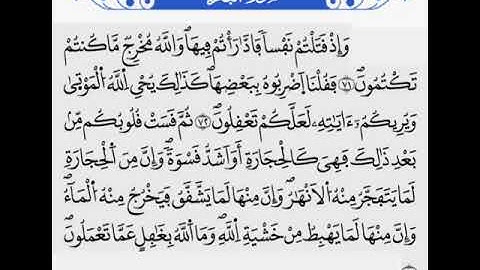 وَإِذْ قَتَلْتُمْ نَفْساً فَادَّٰرَأْتُمْ فِيهَاۖ وَاللَّهُ مُخْرِجٞ مَّا كُنتُمْ
تَكْتُمُونَۖ ۝٧١ فَقُلْنَا اَضْرِبُوهُ بِبَعْضِهَاۖ كَذَٰلِكَ يُحْيِ اِ۬للَّهُ اُ۬لْمَوْتَىٰ
وَيُرِيكُمُۥٓ ءَايَٰتِهِۦ لَعَلَّكُمْ تَعْقِلُونَۖ ۝٧٢ ثُمَّ قَسَتْ قُلُوبُكُم مِّنۢ
بَعْدِ ذَٰلِكَ فَهِيَ كَالْحِجَارَةِ أَوَ اَشَدُّ قَسْوَةٗۖ وَإِنَّ مِنَ اَ۬لْحِجَارَةِ
لَمَا يَتَفَجَّرُ مِنْهُ اُ۬لَانْهَٰرُۖ وَإِنَّ مِنْهَا لَمَا يَشَّقَّقُ فَيَخْرُجُ مِنْهُ اُ۬لْمَآءُۖ
وَإِنَّ مِنْهَا لَمَا يَهْبِطُ مِنْ خَشْيَةِ اِ۬للَّهِۖ وَمَا اَ۬للَّهُ بِغَٰفِلٍ عَمَّا تَعْمَلُونَۖ